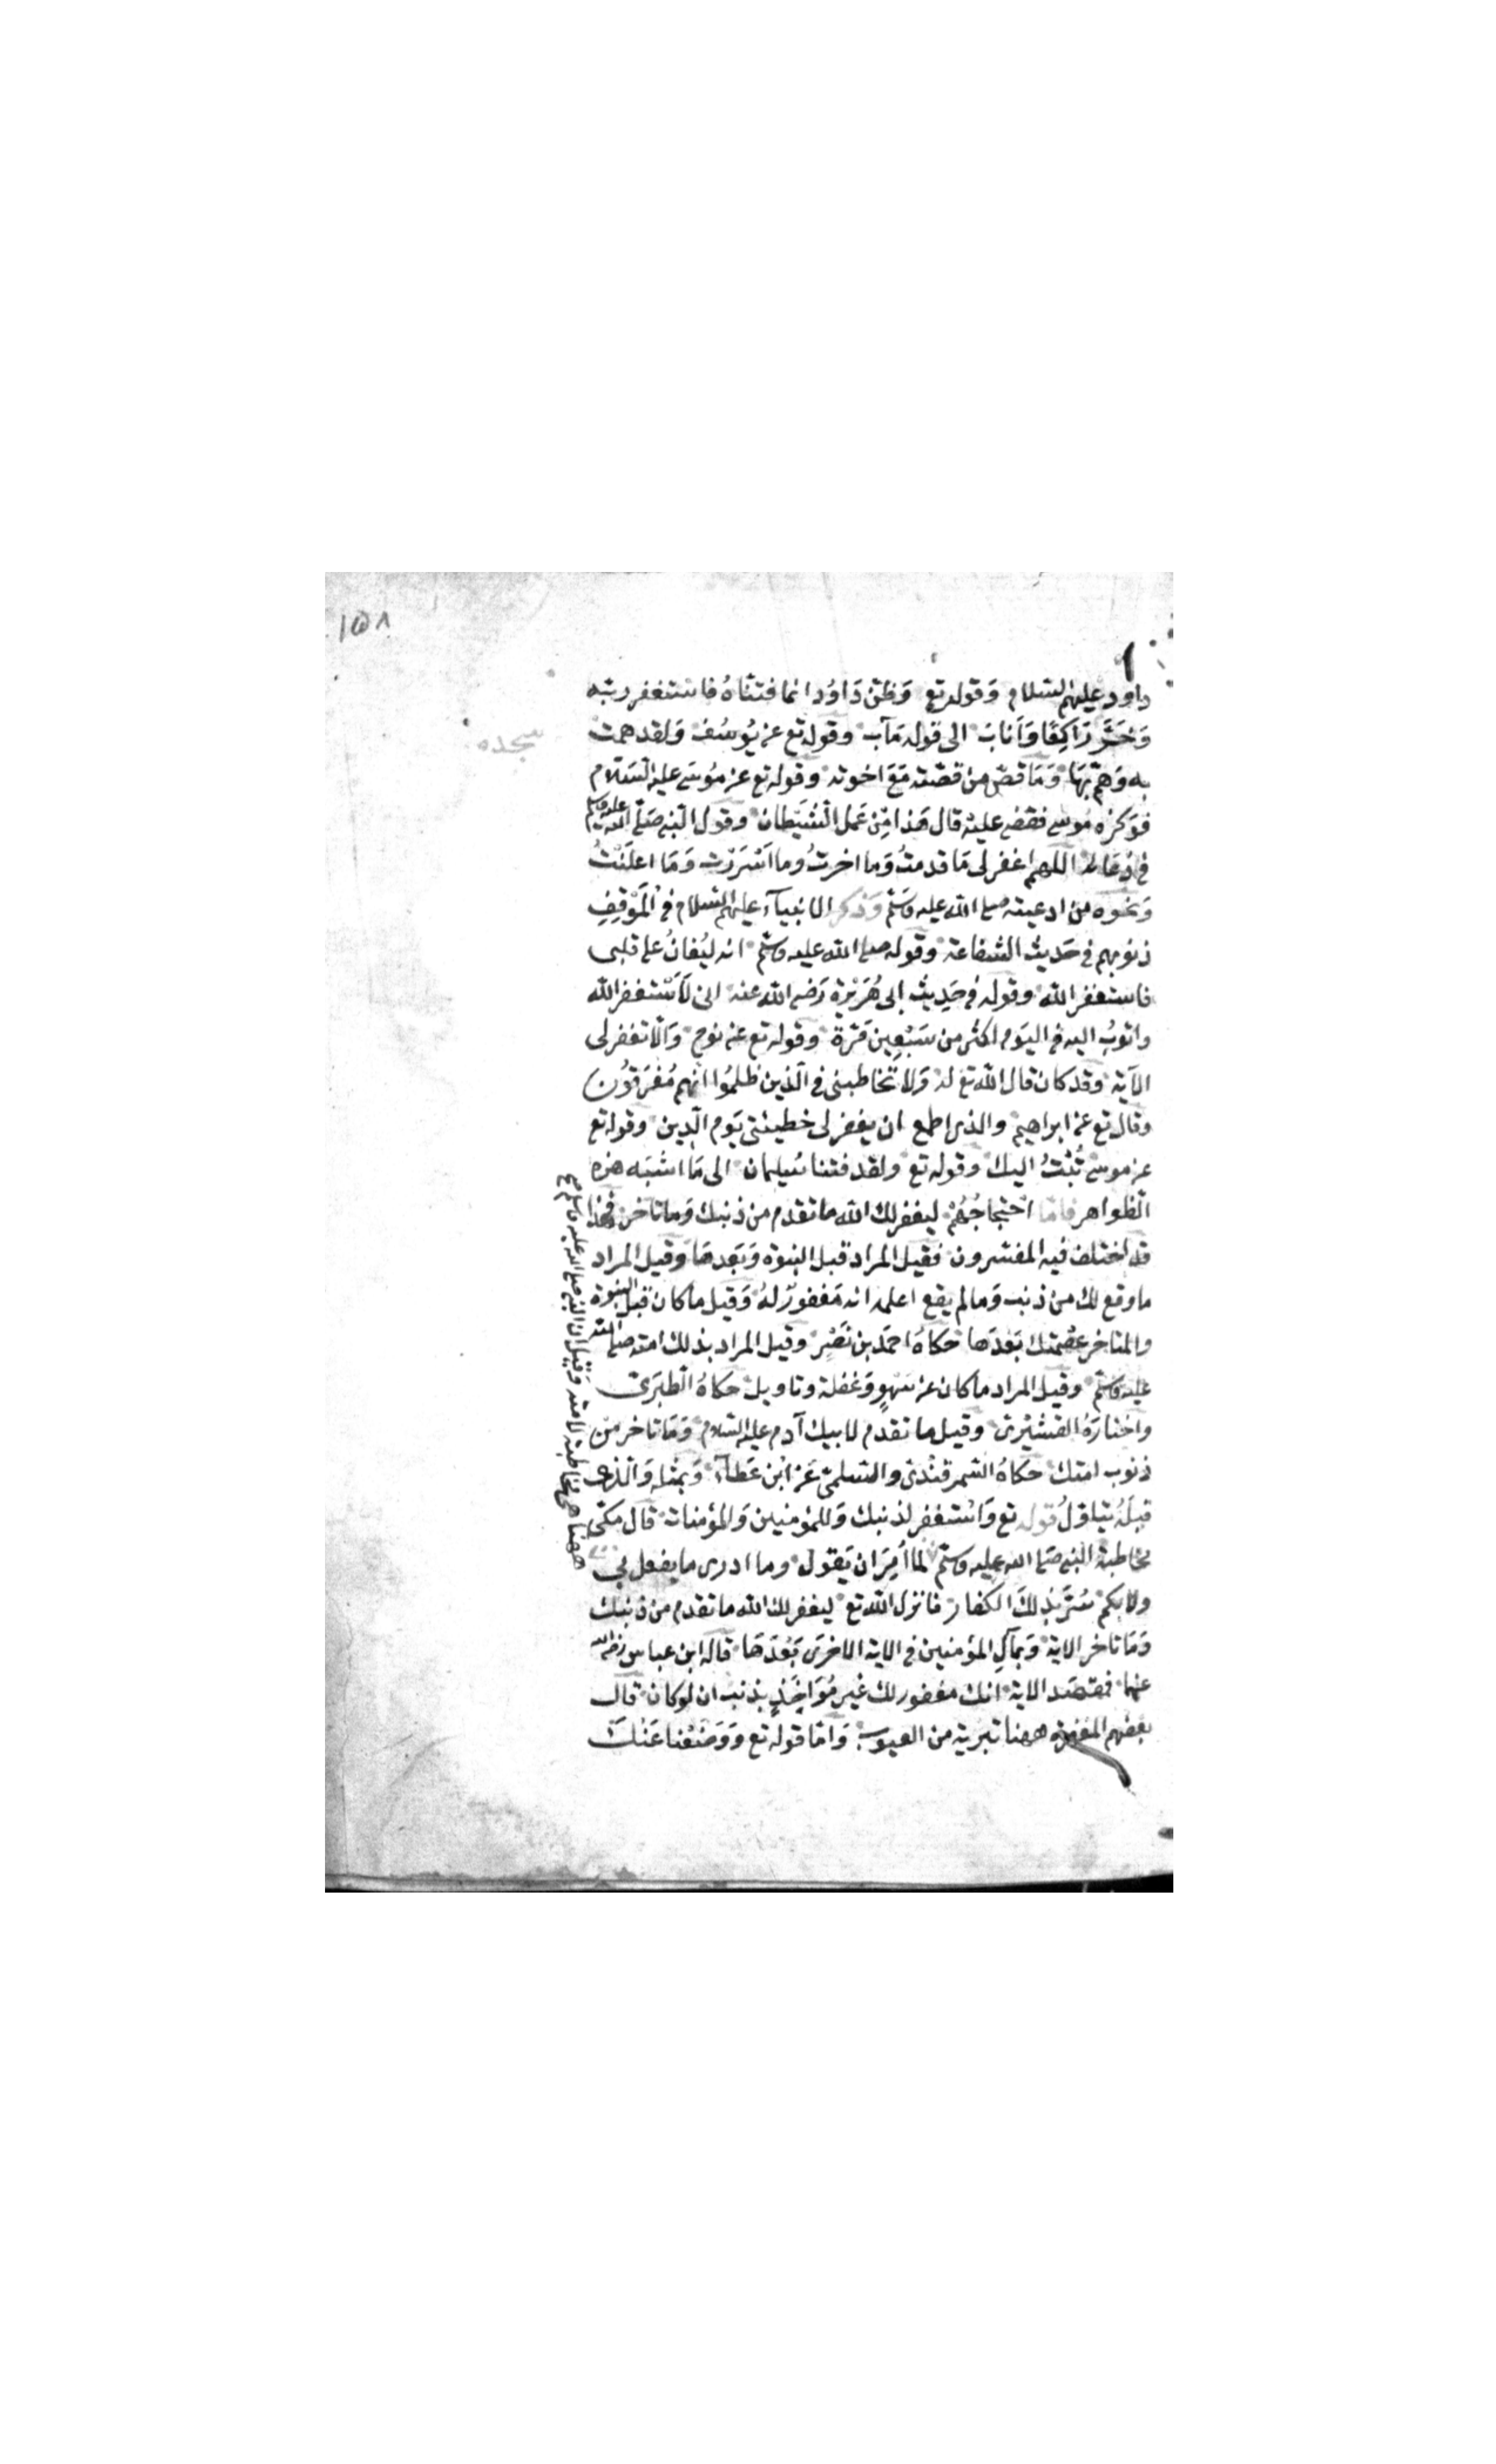 ١٥٨
داود عليهم السلام وقوله تع وَظَنَّ دَاوُد انما فتنّاهُ فاستغفر ربّه
وَخَرَّ رَاكِعًا وَأَنَابَ الى قوله مَآب وقوله تع عن يُوسُف وَلقد همت
سجده
به وَهَمّ بِهَا وَمَا قصّ من قصّته مَعَ اخوته وقوله تع عن مُوسَى عليه السّلام
فوَكزه مُوسى فقضى عليْه قال هَذا مِن عَمل الشَّيْطان وقول النّبي صَلّى الله عليه وسلم
في دُعَائه اللهم اغفر لى مَا قدمتُ وَما اخرتُ وما اَسْرَرْت وَمَا اعلَنْتُ
وَنحوه من ادعيته صلى الله عليه وَسَلّم وَذكر الانبيآء عليهم السلام في المَوْقِفِ
ذنوبهم في حَديث الشفاعة وقوله صلى الله عليه وسلّم انه ليُغانُ على قلبى
فاستغفر الله وقوله في حَدِيث ابى هُرَيْرَة رَضى الله عنه انى لَاَسْتغفر الله
واتوبُ اليه في اليَوم اكثر من سَبْعِين مَرّة وقوله تع عن نوح وَالّا تغفر لى
الآية وقد كان قال الله تع له وَلا تخاطبنى في الّذين ظلمُوا انّهم مُغْرَقوُن
وقال تع عن ابراهيم والذى اطمع ان يغفر لى خطيئتى يَوم الّدِين وقوله تع
عن موسى تُبْتُ اليك وقوله تع ولقد فتنا سُليمان الى مَا اشبَه هذه
الظواهر فامّا احْتجاجُهُمْ ليغفر لك الله ما تقدم من ذنبك وَما تاخر فهذا
قد اختلف فيه المفسّرون فقيل المراد قبل النبوّة وَبَعدهَا وقيل المراد
ما وقع لك من ذنب وَما لم يقع اعلمه انه مَغفورٌ لهُ وَقيل ما كان قبل النبوة
والمتاخر عِصْمتك بَعْدَها حكاهُ احمَد بن نَصْر وقيل المراد بذلك امته صلى الله
عليه وسلّم وقيل المراد ما كان عن سَهْوٍ وَغفلة وتاويل حكاهُ الطبَرىّ
واختارَهُ القشيْرىّ وقيل ما تقدم لابيك آدم عليه السّلام وَمَا تاخر من
ذنوب امتك حكاهُ السّمرقنْدىّ والسّلمىّ عَن ابْن عَطآء وَبمثله وَالّذى
قبلَهُ يتاوّلُ قوله تع وَاسْتغفر لذنبك وَللمؤمنين وَالمؤمنات قال مكىّ
مخاطبة النّبي صَلى الله عليه وسلّم
ههنا هى مخاطبة لامته وقيل ان النبي صلى الله عليه وسلم
لما أُمِرَ ان يَقول وما ادرى ما يفعل بى
ولا بكم سُرَّ بذلِكَ الكفار فانزل الله تع ليغفر لك الله ما تقدم من ذنبك
وَمَا تاخر الاية وَبمآلِ المؤمنين في الاية الاخرَى بَعْدَهَا قاله ابن عباس رضى الله
عنهما فمقصَد الاية انك مغفور لك غير مُوَاخَذٍ بذنب ان لو كان قال
بعضهم المغفرة ههنا تبرية من العيوب وَامّا قوله تع وَوَضَعْنا عَنْكَ